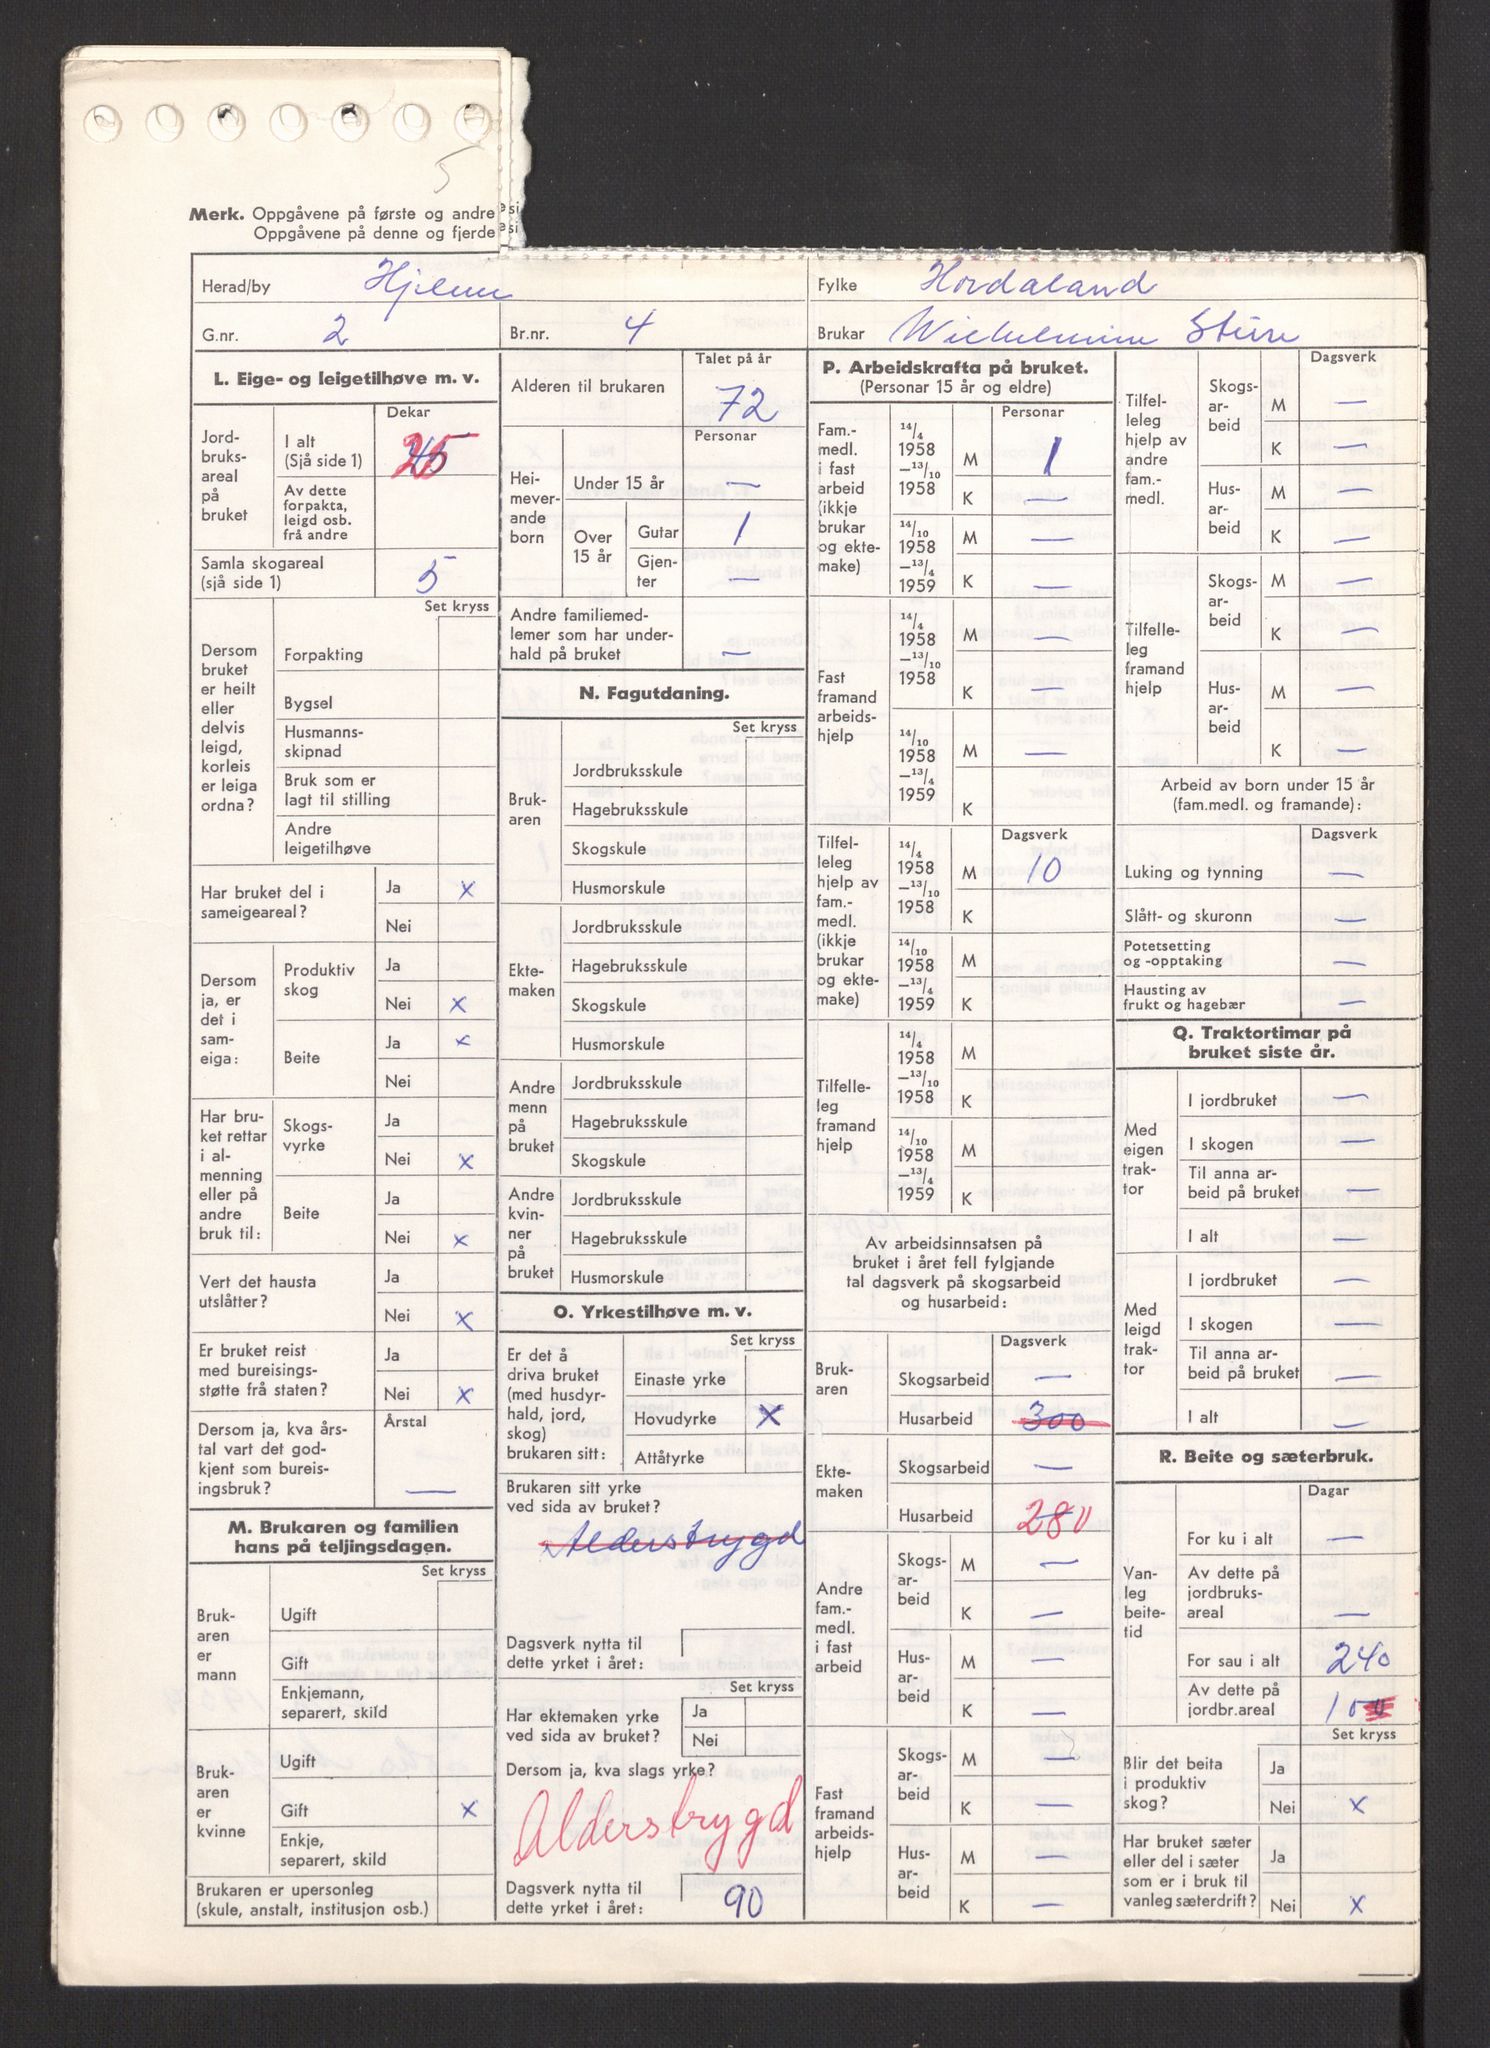 5
Merk. Oppgåvene på første og andre
Oppgåvene på denne og fjerde
Herad/by Hjelme
Fylke Hordaland
G.nr. 2
Br.nr. 4
Brukar Wilhelmine Sture
L. Eige- og leigetilhøve m. v.
Dekar
Jord-
bruks-
areal
på
bruket
I alt
(Sjå side 1)
Av dette
forpakta,
leigd osb.
frå andre
Samla skogareal
(sjå side 1) 5
Set kryss
Dersom
bruket
er heilt
eller
delvis
leigd,
korleis
er leiga
ordna?
Forpakting
Bygsel
Husmanns-
skipnad
Bruk som er
lagt til stilling
Andre
leigetilhøve
Har bruket del i
sameigeareal?
Ja x
Nei
Dersom
ja, er
det i
sam-
eiga:
Produktiv
skog
Ja
Nei x
Beite
Ja x
Nei
Har bru-
ket rettar
i al-
menning
eller på
andre
bruk til:
Skogs-
vyrke
Ja
Nei x
Beite
Ja
Nei x
Vert det hausta
utslåtter?
Ja
Nei x
Er bruket reist
med bureisings-
støtte frå staten?
Ja
Nei x
Dersom ja, kva års-
tal vart det god-
kjent som bureis-
ingsbruk?
Årstal
—
M. Brukaren og familien
hans på teljingsdagen.
Set kryss
Bruk-
aren
er
mann
Ugift
Gift
Enkjemann,
separert, skild
Bruk-
aren
er
kvinne
Ugift
Gift x
Enkje,
separert, skild
Brukaren er upersonleg
(skule, anstalt, institusjon osb.)
Talet på år
Alderen til brukaren 72
Personar
Hei-
mever-
ande
born
Under 15 år —
Over
15 år
Gutar 1
Gjen-
ter —
Andre familiemed-
lemer som har under-
hald på bruket —
N. Fagutdaning.
Set kryss
Bruk-
aren
Jordbruksskule
Hagebruksskule
Skogskule
Husmorskule
Ekte-
maken
Jordbruksskule
Hagebruksskule
Skogskule
Husmorskule
Andre
menn
på
bruket
Jordbruksskule
Hagebruksskule
Skogskule
Andre
kvin-
ner
på
bruket
Jordbruksskule
Hagebruksskule
Husmorskule
O. Yrkestilhøve m. v.
Set kryss
Er det å
driva bruket
(med husdyr-
hald, jord,
skog)
brukaren sitt:
Einaste yrke
Hovudyrke x
Attåtyrke
Brukaren sitt yrke
ved sida av bruket?
Alderstrygd
Dagsverk nytta til
dette yrket i året:
Set kryss
Har ektemaken yrke
ved sida av bruket?
Ja
Nei
Dersom ja, kva slags yrke?
Alderstrygd
Dagsverk nytta til
dette yrket i året: 90
P. Arbeidskrafta på bruket.
(Personar 15 år og eldre)
Personar
Fam.-
medl.
i fast
arbeid
(ikkje
brukar
og ekte-
make)
14/4
1958
—13/10
1958
M 1
K —
14/10
1958
—13/4
1959
M —
K —
Fast
framand
arbeids-
hjelp
14/4
1958
—13/10
1958
M —
K —
14/10
1958
—13/4
1959
M —
K
Dagsverk
Tilfel-
leleg
hjelp av
fam.-
medl.
(ikkje
brukar
og ekte-
make)
14/4
1958
—13/10
1958
M 10
K
14/10
1958
—13/4
1959
M
K
Tilfelle-
leg
framand
hjelp
14/4
1958
—13/10
1958
M
K
14/10
1958
—13/4
1959
M
K
Av arbeidsinnsatsen på
bruket i året fell fylgjande
tal dagsverk på skogsarbeid
og husarbeid:
Dagsverk
Bruk-
aren
Skogsarbeid —
Husarbeid 300
Ekte-
maken
Skogsarbeid —
Husarbeid 280
Andre
fam.-
medl.
i fast
arbeid
Skogs-
ar-
beid
M —
K —
Hus-
ar-
beid
M —
K —
Fast
framand
arbeids-
hjelp
Skogs-
ar-
beid
M —
K —
Hus-
ar-
beid
M —
K —
Dagsverk
Tilfel-
leleg
hjelp av
andre
fam.-
medl.
Skogs-
ar-
beid
M —
K —
Hus-
ar-
beid
M —
K —
Tilfelle-
leg
framand
hjelp
Skogs-
ar-
beid
M —
K —
Hus-
ar-
beid
M —
K —
Arbeid av born under 15 år
(fam.medl. og framande):
Dagsverk
Luking og tynning —
Slått- og skuronn —
Potetsetting
og -opptaking —
Hausting av
frukt og hagebær —
Q. Traktortimar på
bruket siste år.
Med
eigen
trak-
tor
I jordbruket —
I skogen —
Til anna ar-
beid på bruket —
I alt —
Med
leigd
trak-
tor
I jordbruket —
I skogen —
Til anna ar-
beid på bruket —
I alt —
R. Beite og sæterbruk.
Dagar
Van-
leg
beite-
tid
For ku i alt —
Av dette på
jordbruks-
areal —
For sau i alt 240
Av dette på
jordbr.areal
Set kryss
Blir det beita
i produktiv
skog?
Ja
Nei x
Har bruket sæter
eller del i sæter
som er i bruk til
vanleg sæterdrift?
Ja
Nei x